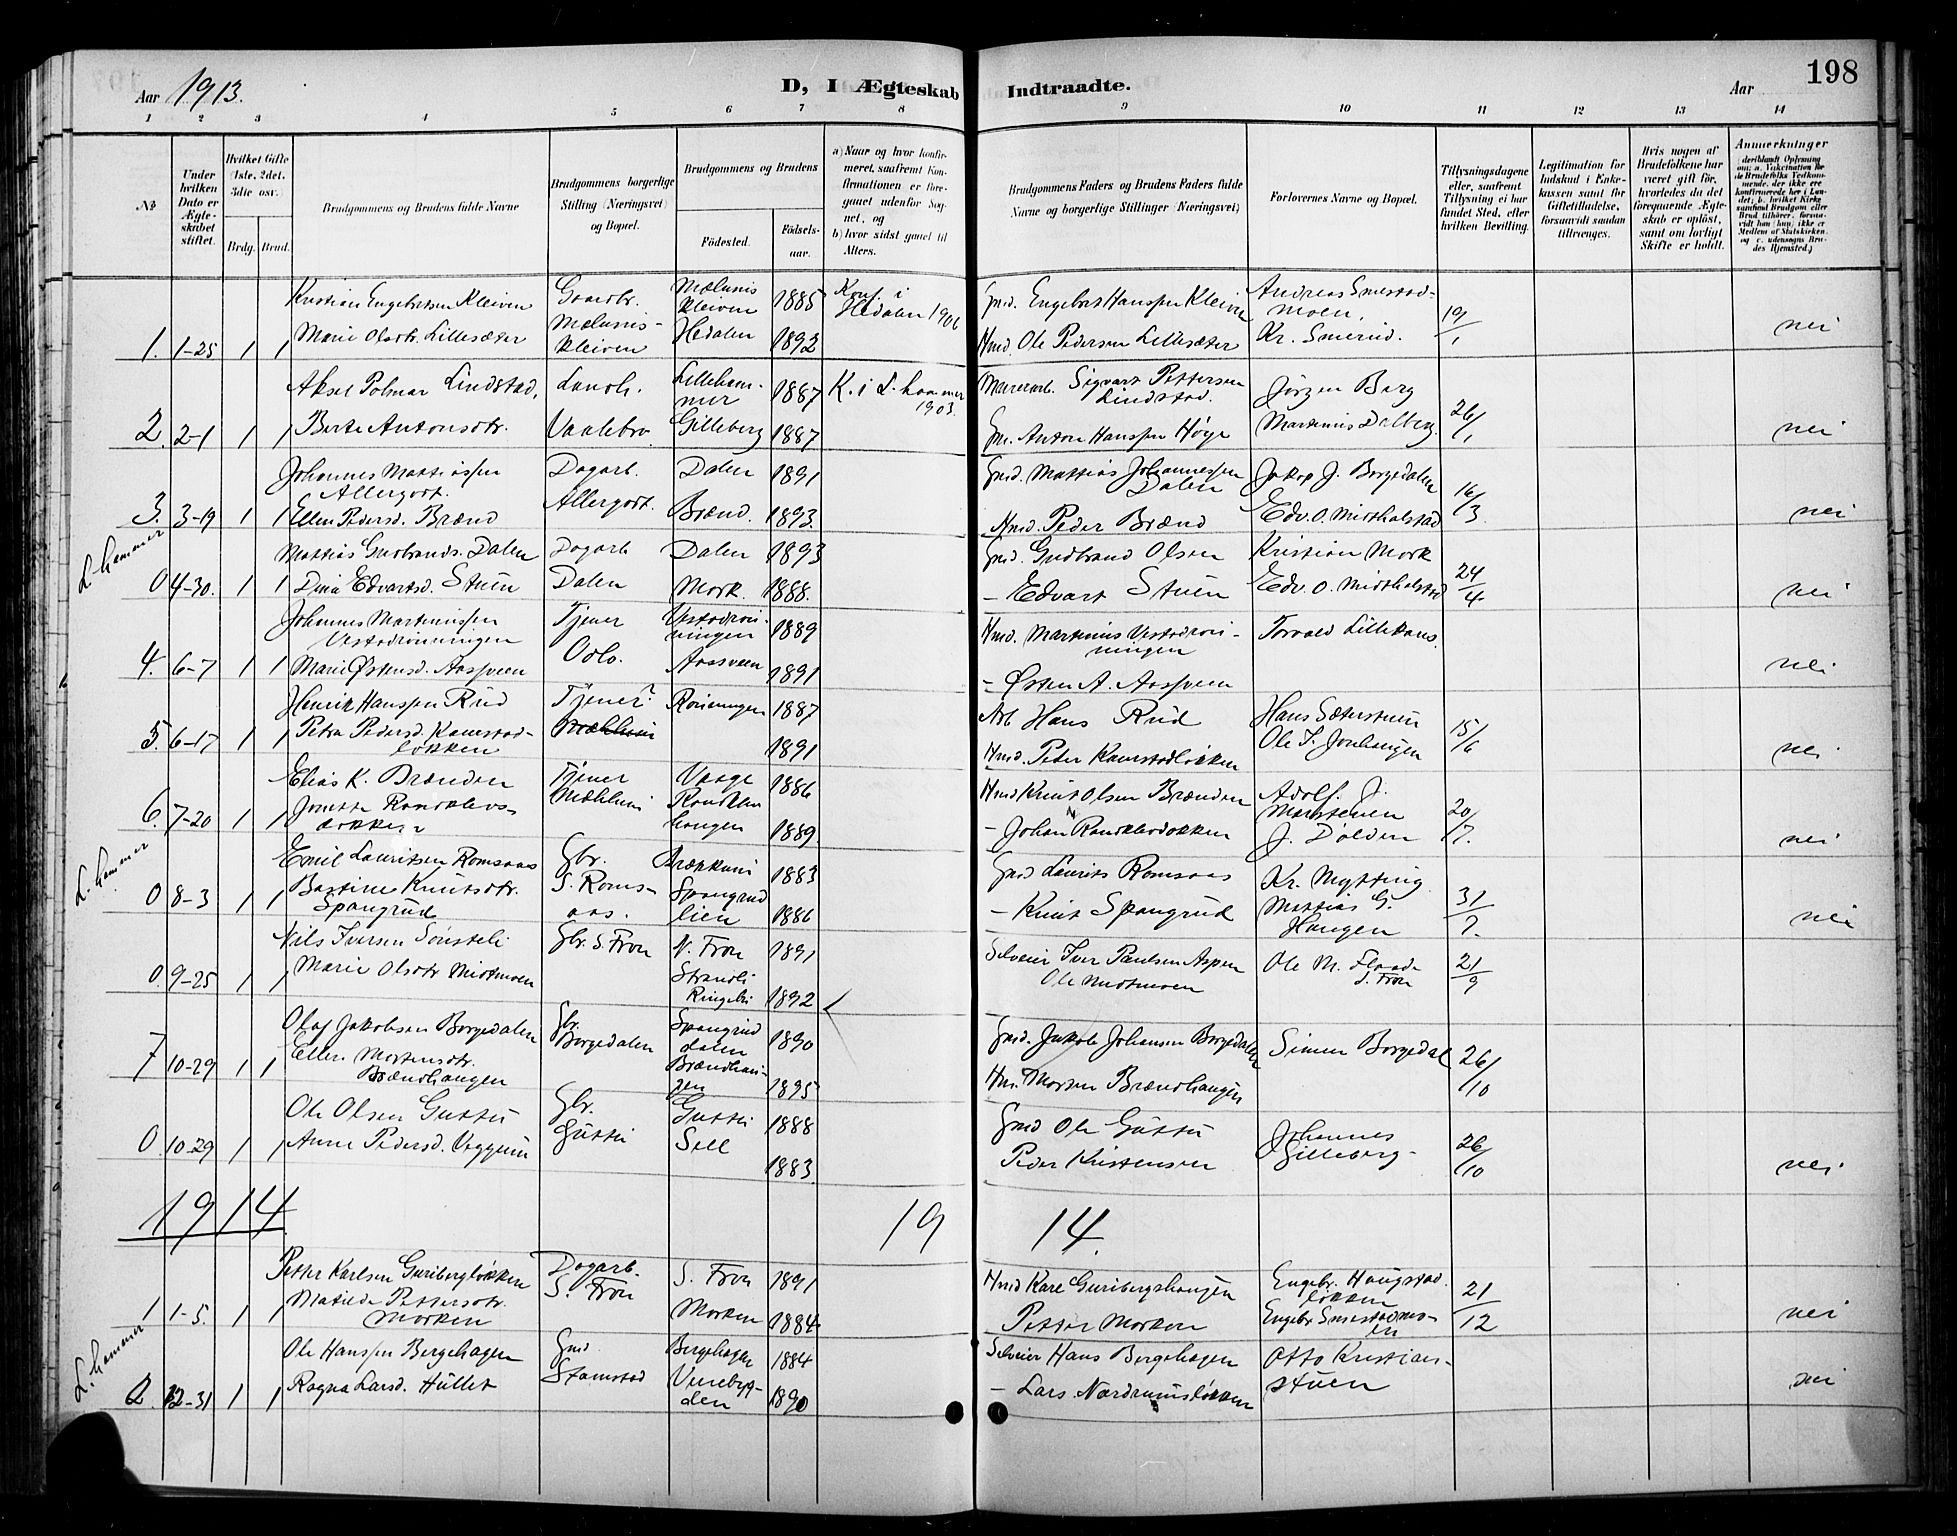 Aar 1913.
D, I Ægteskab Indtraadte.
Aar
198
1 2 3 4 5 6 7 8 9 10 11 12 13 14
No
Under hvilken Dato er Ægteskabet stiftet.
Hvilket Gifte (1ste, 2det, 3die osv.
Brdg. Brud.
Brudgommens og Brudens fulde Navne
Brudgommens borgerlige Stilling (Næringsvei) og Bopæl.
Brudgommens og Brudens
Födested.
Födsels-aar.
a) Naar og hvor konfirmeret, saafremt Konfirmationen er foregaaet udenfor Sognet, og
b) hvor sidst gaaet til Alters.
Brudgommens Faders og Brudens Faders fulde Navne og borgerlige Stillinger (Næringsvei)
Forlovernes Navne og Bopæl.
Tillysningsdagene eller, saafremt Tillysning ei har fundet Sted, efter hvilken Bevilling.
Legitimation for Indskud i Enkekassen samt for Giftetilladelse, forsaavidt saadan tiltrænges.
Hvis nogen af Brudefolkene har været gift før, hvorledes da det foregaaende Ægteskab er opløst, samt om lovligt Skifte er holdt.
Anmærkninger
1. 1-25 1 1 Kristian Engebretsen Kleiven Gaardbr. Mælumskleiven 1885 Konf. i Hedalen 1906 Gmd. Engebret Hanssen Kleiven Andreas Smestadmoen, 19/1 nei
Marie Olsdtr. Lillesæter Mælumskleiven Hedalen 1892 Hmd. Ole Pedersen Lillesæter Kr. Smerud.
2. 2-1 1 1 Aksel Polmar Lindstad, Landh. Lillehammer 1887 K. i L.hammer 1903. Murerarb. Sigvart Pettersen Lindstad. Jörgen Berg 26/1 nei
Berte Antonsdtr. Vaalebro Gilleberg 1887 Gm. Anton Hanssen Høge Martinius Dalberg.
3. 3-19 1 1 Johannes Mattiassen Allergodt. Dagarb. Dalen 1891 Gmd. Mattias Johannessen Dalen Jakop J. Borgedalen 16/3 nei
Ellen Pedersd. Brænd Allergodt. Brænd. 1893 Hmd. Peder Brænd Edv. O. Midthalstad
L.hammer
0 4-30. 1 1 Mattias Gudbrands. Dalen Dagarb Dalen 1893 Gmd. Gudbrand Olsen Kristian Mork 24/4 nei
Dina Edvartsd. Stuen Dalen Mork. 1888. - Edvart Stuen Edv. O. Midthalstad
4. 6-7 1 1 Johannes Martinussen Vestadrönningen Tjener Vestadrönningen 1889 Hmd. Martinius Vestadrönningen Torvald Lillehans. nei
Marie Østensd. Aassveen Odlo. Aassveen 1891 - Østen A. Aassveen
5. 6-17 1 1 Henrik Hanssen Rud Tjener? Rönningen 1887 Arb Hans Rud Hans Sæterstuen 15/6 nei
Petra Pedersd. Kamstadløkken 1891 Hmd. Peder Kamstadløkken Ole J. Jonhaugen
6. 7-20 1 1 Elias K. Brænden Tjener Vaage 1886 Hmd Knut Olsen Brænden Adolf J. Martenen 20/7. nei
Mæhlum 1889. - Johan J. Dolden
L.hammer
0 8-3 1 1 Emil Lauritsen Romsaas Gbr. Brækkum 1883 Gmd Laurits Romsaas Kr. Mytting 31/7. nei
Bastine Knutsdtr. Spangrud S. Romsaas. Spangrudlien 1886 - Knut Spangrud Mattias G. Haugen
0. 9-25 1 1 Nils Iversen Sönsteli Gbr. S. Fron N. Fron 1891 Selveier Iver Paulsen Aspen Ole M. Flaad S. Fron 21/9
Marie Olsdtr Midtmoen Strandli Ringebu 1892 Ole Midtmoen
7 10-29 1 1 Olaf Jakobsen Borgedalen Gbr. Borgedalen Spangruddalen 1890 Gmd. Jakob Johansen Borgedalen Simen Borgedal 26/10
Ellen Mortensdtr. Brændhaugen Brændhaugen 1895 Hm. Morten Brændhaugen
0 10-29 1 1 Ole Olsen Guttu Gbr. Guttu 1888 Gmd Ole Guttu Johannes Gilleberg - 26/10 nei
Anne Pedersd. Veggum Guttu Sell 1883. Peder Kristensen
1914 19 14.
1 1-5. 1 1 Petter Karlsen Guribergløkken Dagarb. S. Fron S. Fron 1891 Hmd Karl Guribergshaugen Engebr. Haugstadløkken 21/12 nei
Matilde Pettersdtr. Morken Morken 1884 Petter Morken Engebr Smestadmoen
L.hammer
2. 12-31 1 1 Ole Hanssen Bergehagen Gmd. Bergehagen 1884 Selveier Hans Bergehagen Otto Kristianstuen nei
Ragna Larsd. Hullet Stamstad Venebygden 1890 - Lars Nordrumsløkken